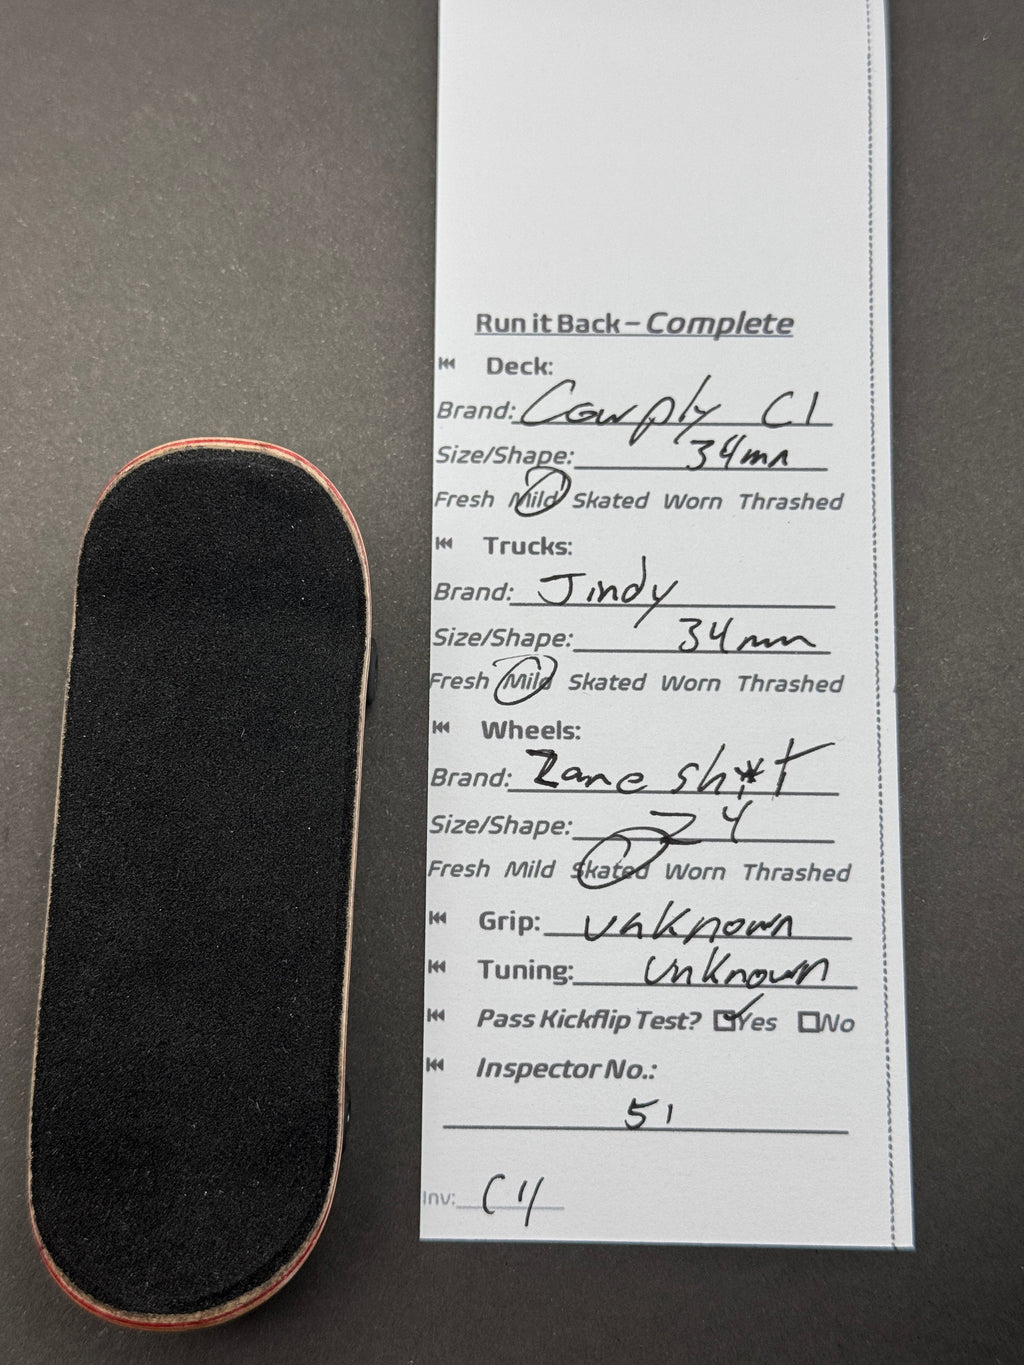 Run it Back – Complete
Deck:
Brand: Cowply C1
Size/Shape: 34mm
Fresh Mild Skated Worn Thrashed
Trucks:
Brand: Jindy
Size/Shape: 34mm
Fresh Mild Skated Worn Thrashed
Wheels:
Brand: Zane sh*t
Size/Shape:
Fresh Mild Skated Worn Thrashed
Grip: unknown
Tuning: unknown
Pass Kickflip Test? Yes No
Inspector No.:
51
Inv: